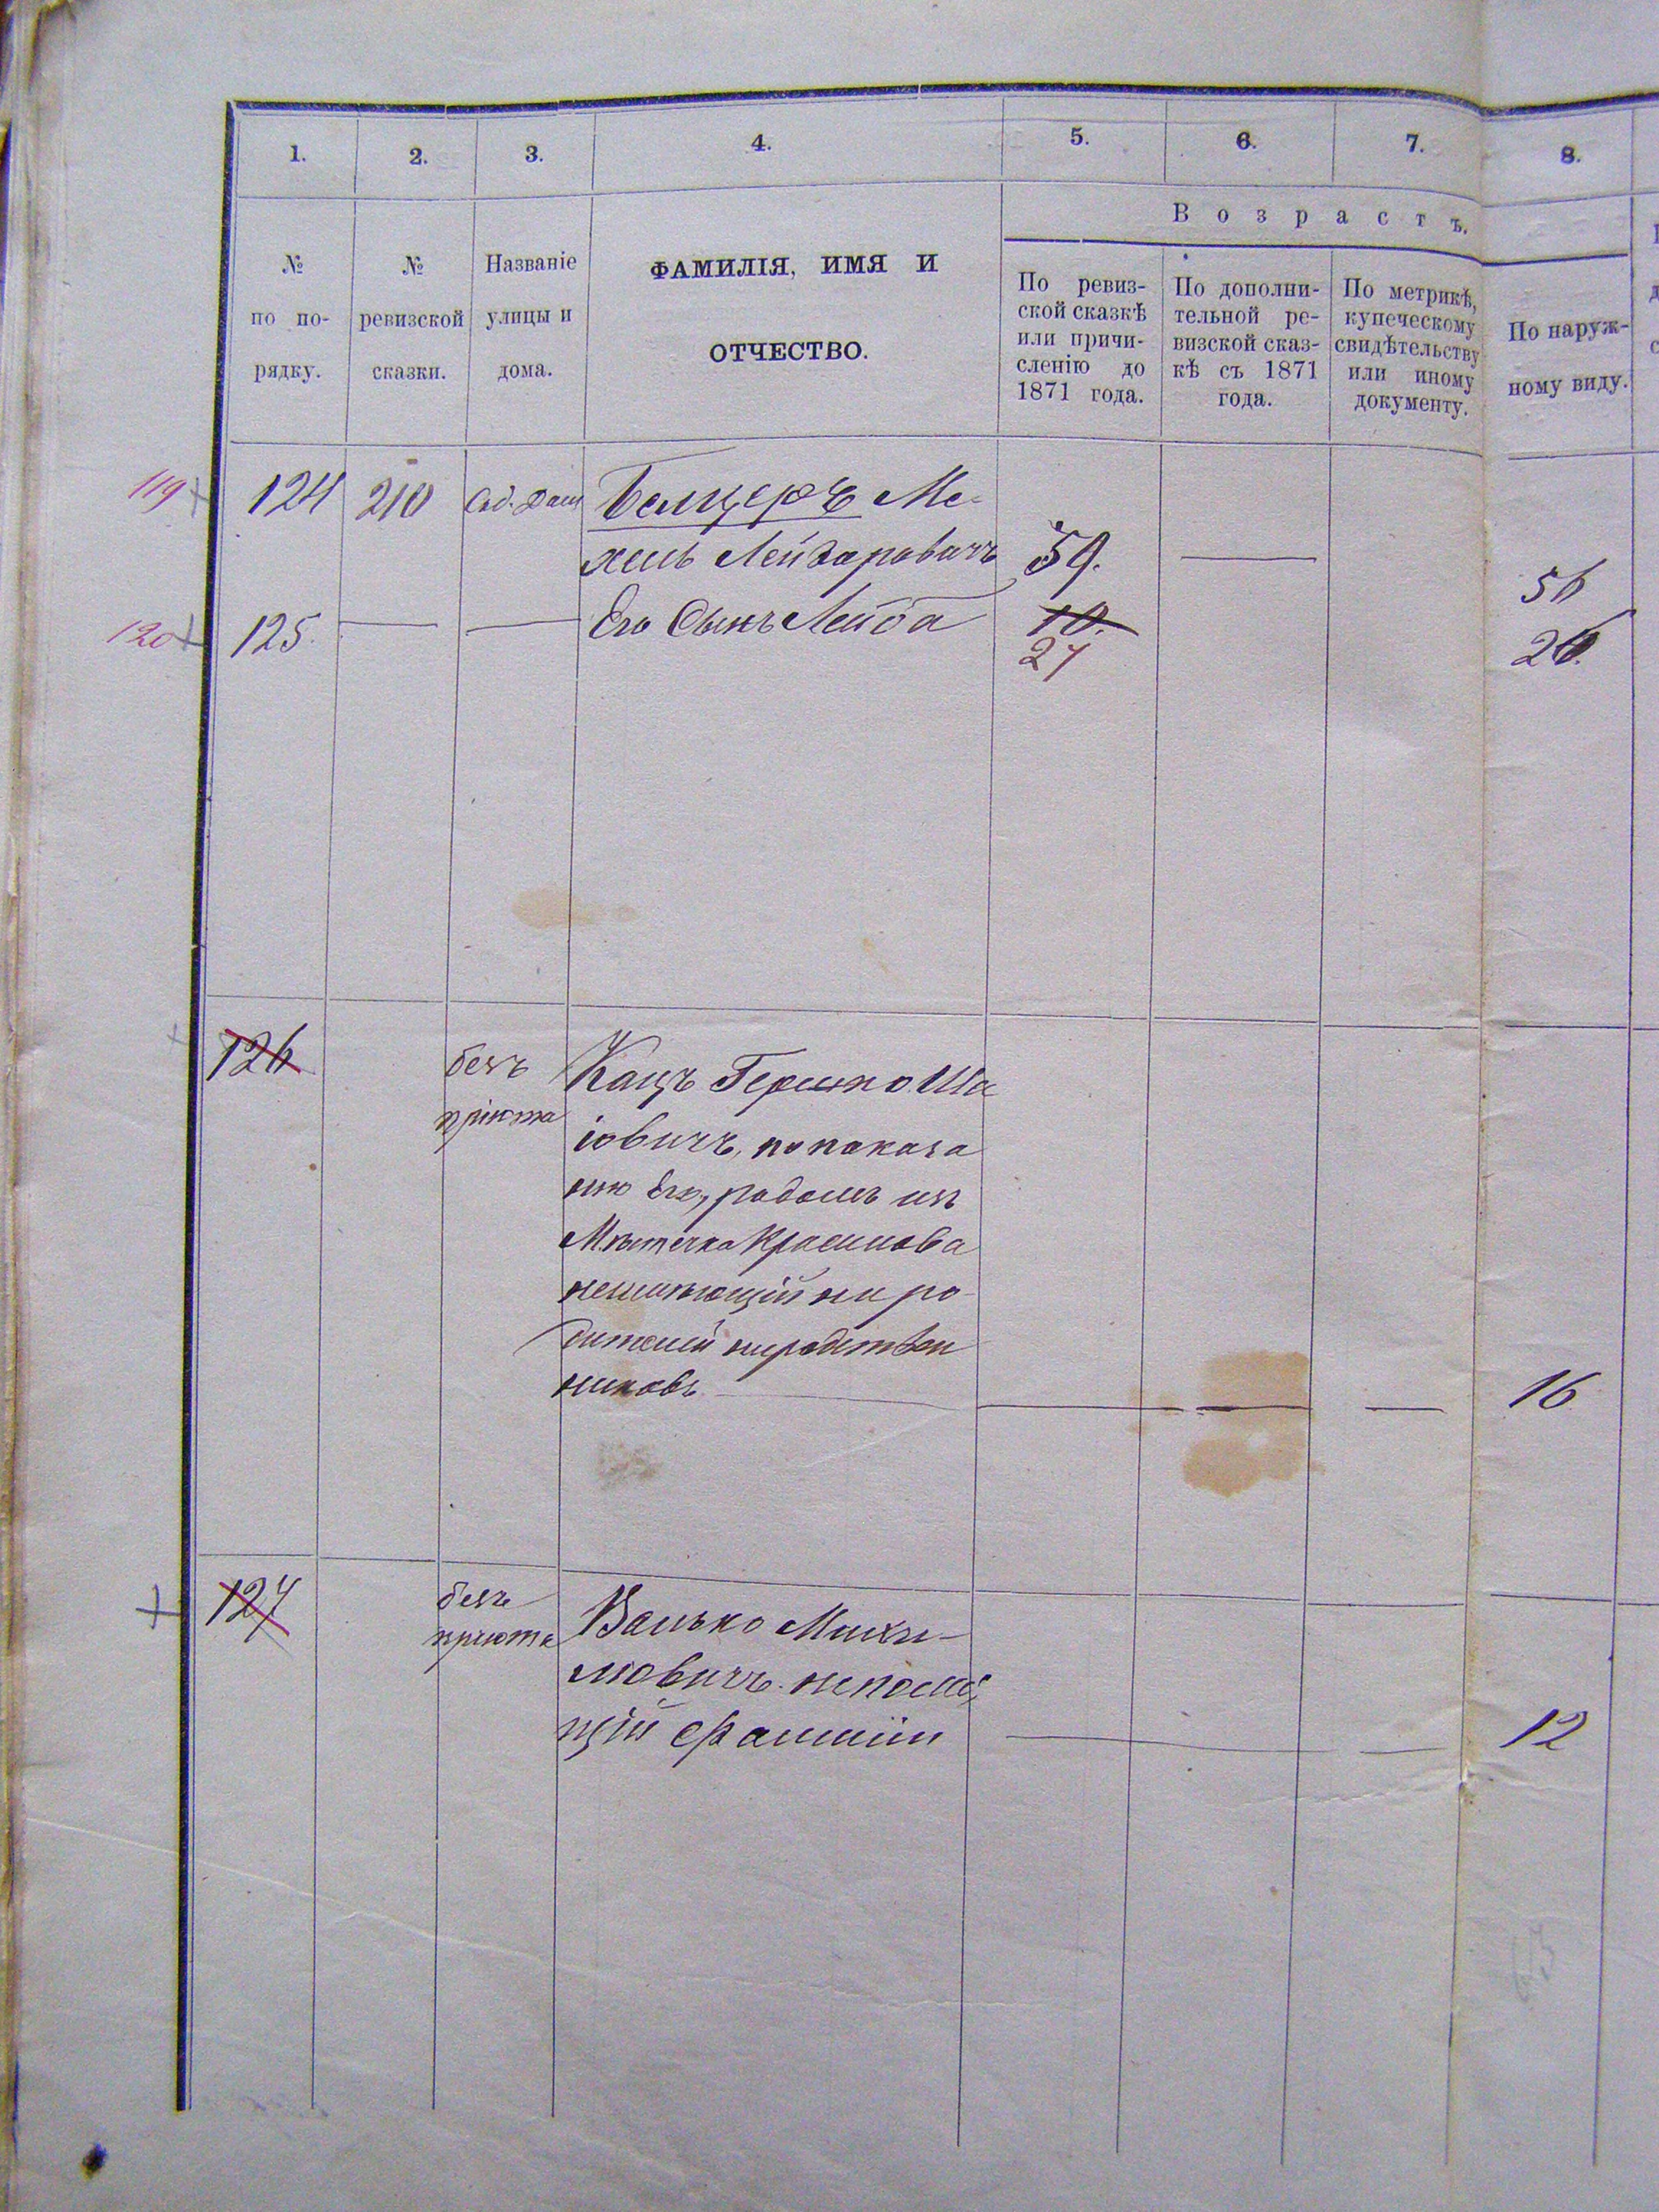 1. 2. 3. 4. 5. 6. 7. 8.
В о з р а с т ъ.
№
по по-
рядку.
№
ревизской
сказки.
Названіе
улицы и
дома.
ФАМИЛІЯ, ИМЯ И
ОТЧЕСТВО.
По ревиз-
ской сказкѣ
или причи-
сленію до
1871 года.
По дополни-
тельной ре-
визской сказ-
кѣ съ 1871
года.
По метрикѣ,
купеческому
свидѣтельству
или иному
документу.
По наруж-
ному виду.
119 124 210 Соб. Дом Белцеръ Ме-
хель Лейзаровичъ 59. 56
120 125. Его Сынъ Лейба 10. 26.
27
126 безъ Кацъ Гершко Ша
пріюта іовичъ, по показа
нію Его, родомъ изъ
Мѣстечка
неимѣющій ни ро-
дителей ни родствен
никовъ 16
127 безъ Валько
пріюта
щій Фамиліи 12